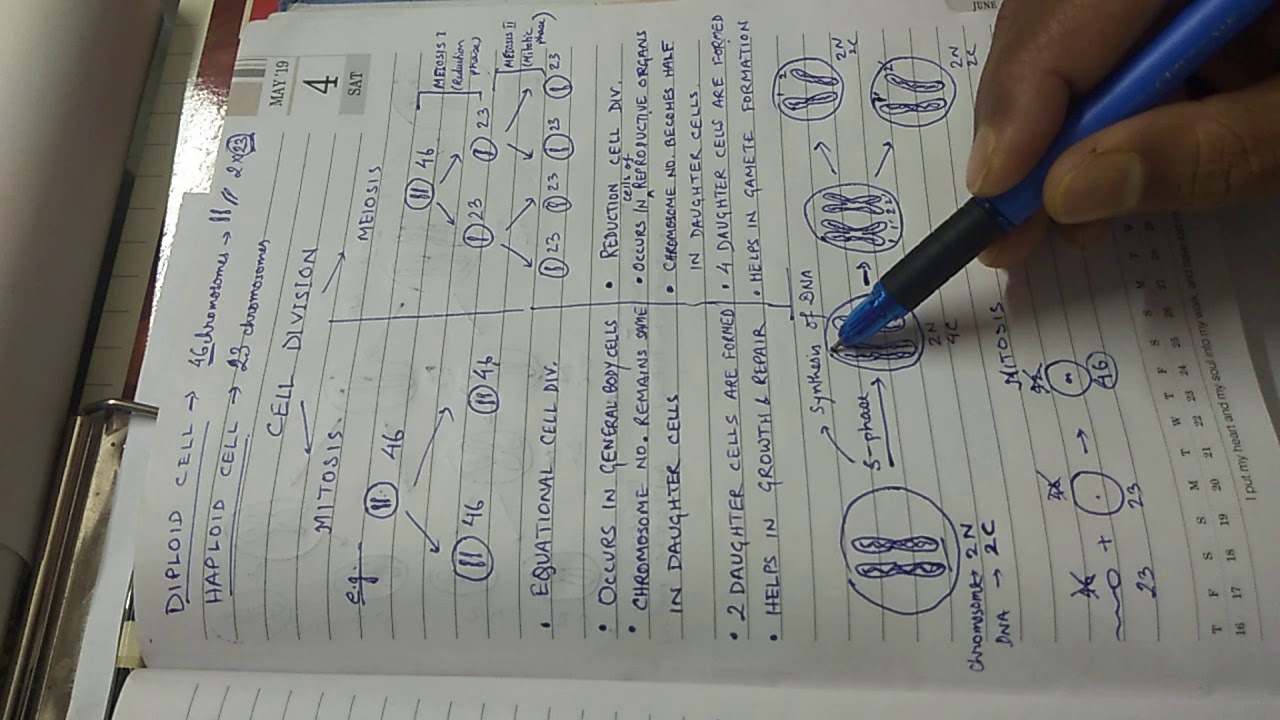 MAY'19
4
SAT
JUNE
DIPLOID CELL → 46 chromosomes → 2 x 23
HAPLOID CELL → 23 chromosomes
CELL DIVISION
MITOSIS
MEIOSIS
e.g.
46
46
46
46
23
23
23
23
23
23
MEIOSIS I
(Reduction
phase)
MEIOSIS II
(Mitotic
phase)
• EQUATIONAL CELL DIV.
• OCCURS IN GENERAL BODY CELLS
• CHROMOSOME NO. REMAINS SAME
IN DAUGHTER CELLS
• 2 DAUGHTER CELLS ARE FORMED
• HELPS IN GROWTH & REPAIR
• REDUCTION CELL DIV.
• OCCURS IN cells of REPRODUCTIVE ORGANS
• CHROMOSOME NO. BECOMES HALF
IN DAUGHTER CELLS.
• 4 DAUGHTER CELLS ARE FORMED
• HELPS IN GAMETE FORMATION
→ Synthesis of DNA
S-phase →
2N
4C
2N
2C
2N
2C
Chromosome → 2N
DNA → 2C
MITOSIS
23
+
23
→
46
T F S S M T W T F S S M T W
16 17 18 19 20 21 22 23 24 25 26 27 28
I put my heart and my soul into my work, and have